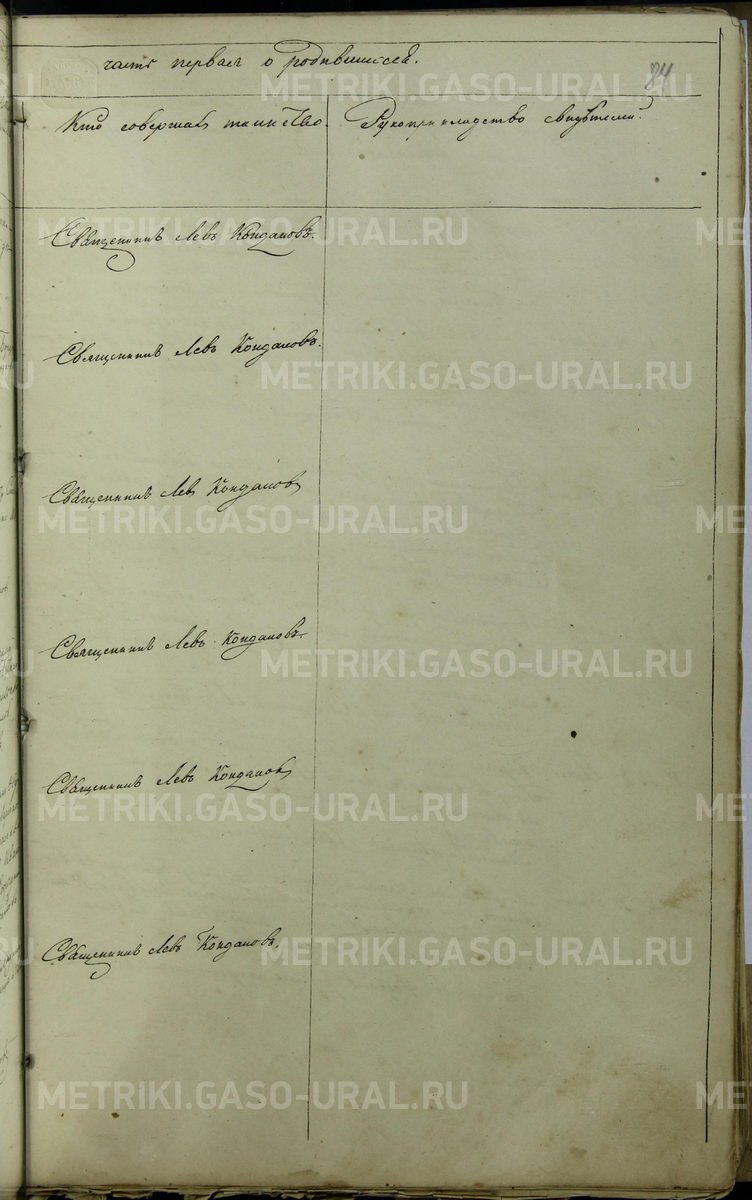 часть первая о родившихся.
84
Кто совершал таинство.
Рукоприкладство свидѣтелей.
Священникъ Левъ Кондаковъ.
Священникъ Левъ Кондаковъ.
Священникъ Левъ Кондаковъ
Священникъ Левъ Кондаковъ.
Священникъ Левъ Кондаковъ
Священникъ Левъ Кондаковъ.
METRIKI.GASO-URAL.RU